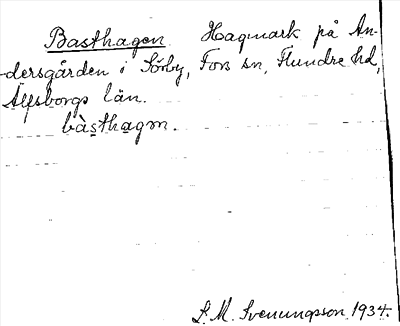 Basthagen Hagmark på An-
dersgården i Sörby, Fors sn, Flundre hd,
Älfsborgs län.
bàsthagɷn.
S. M. Svenungsson 1934.